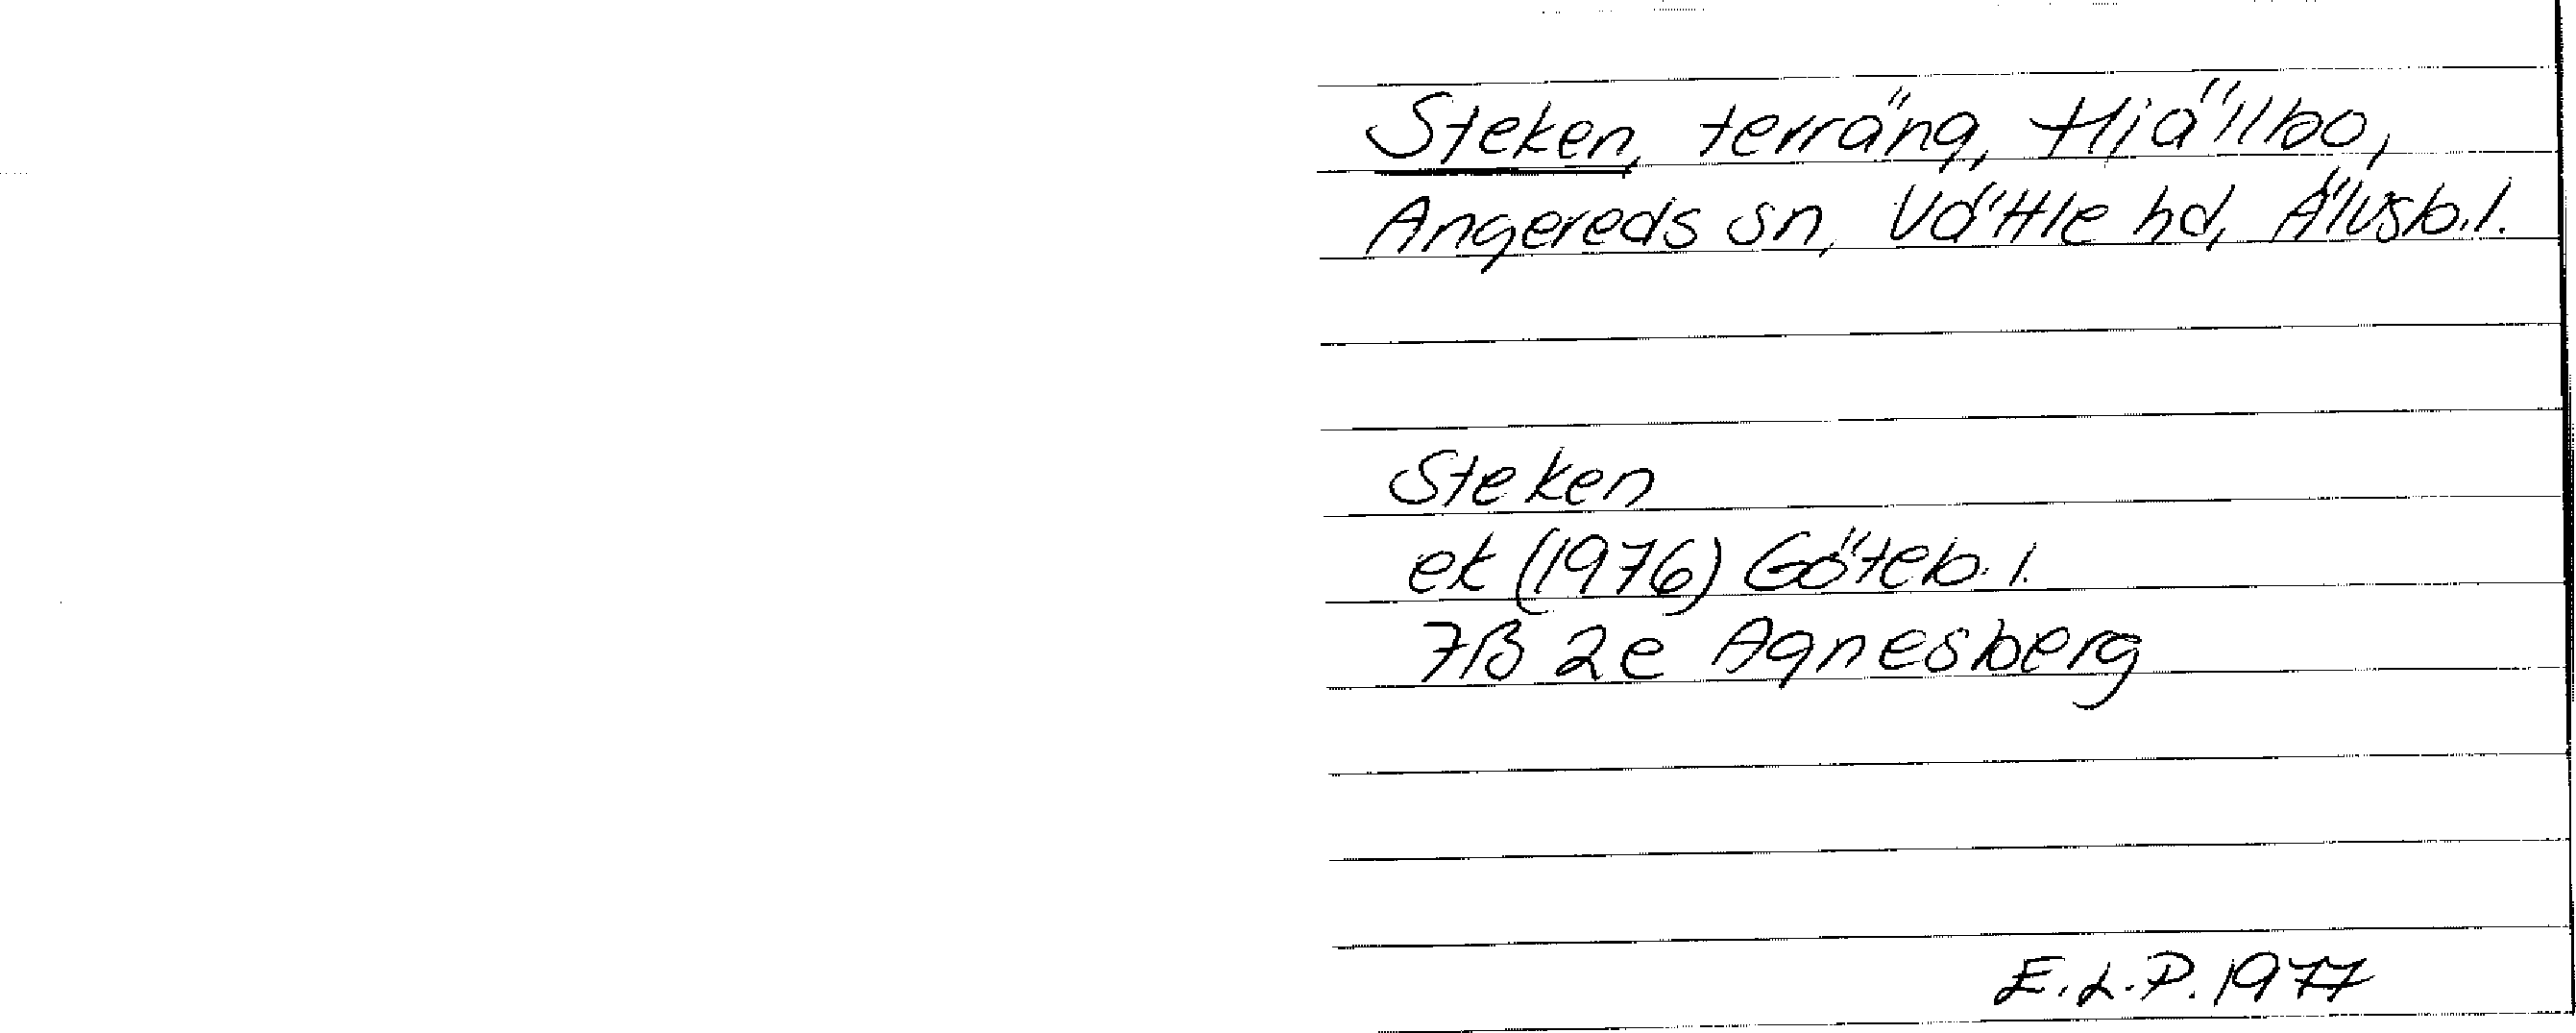 Steken, terräng, Hjällbo,
Angereds sn, Vättle hd, Älvsb.l.
Steken
ek (1976) Göteb. l.
7B 2e Agnesberg
E.L.P. 1977